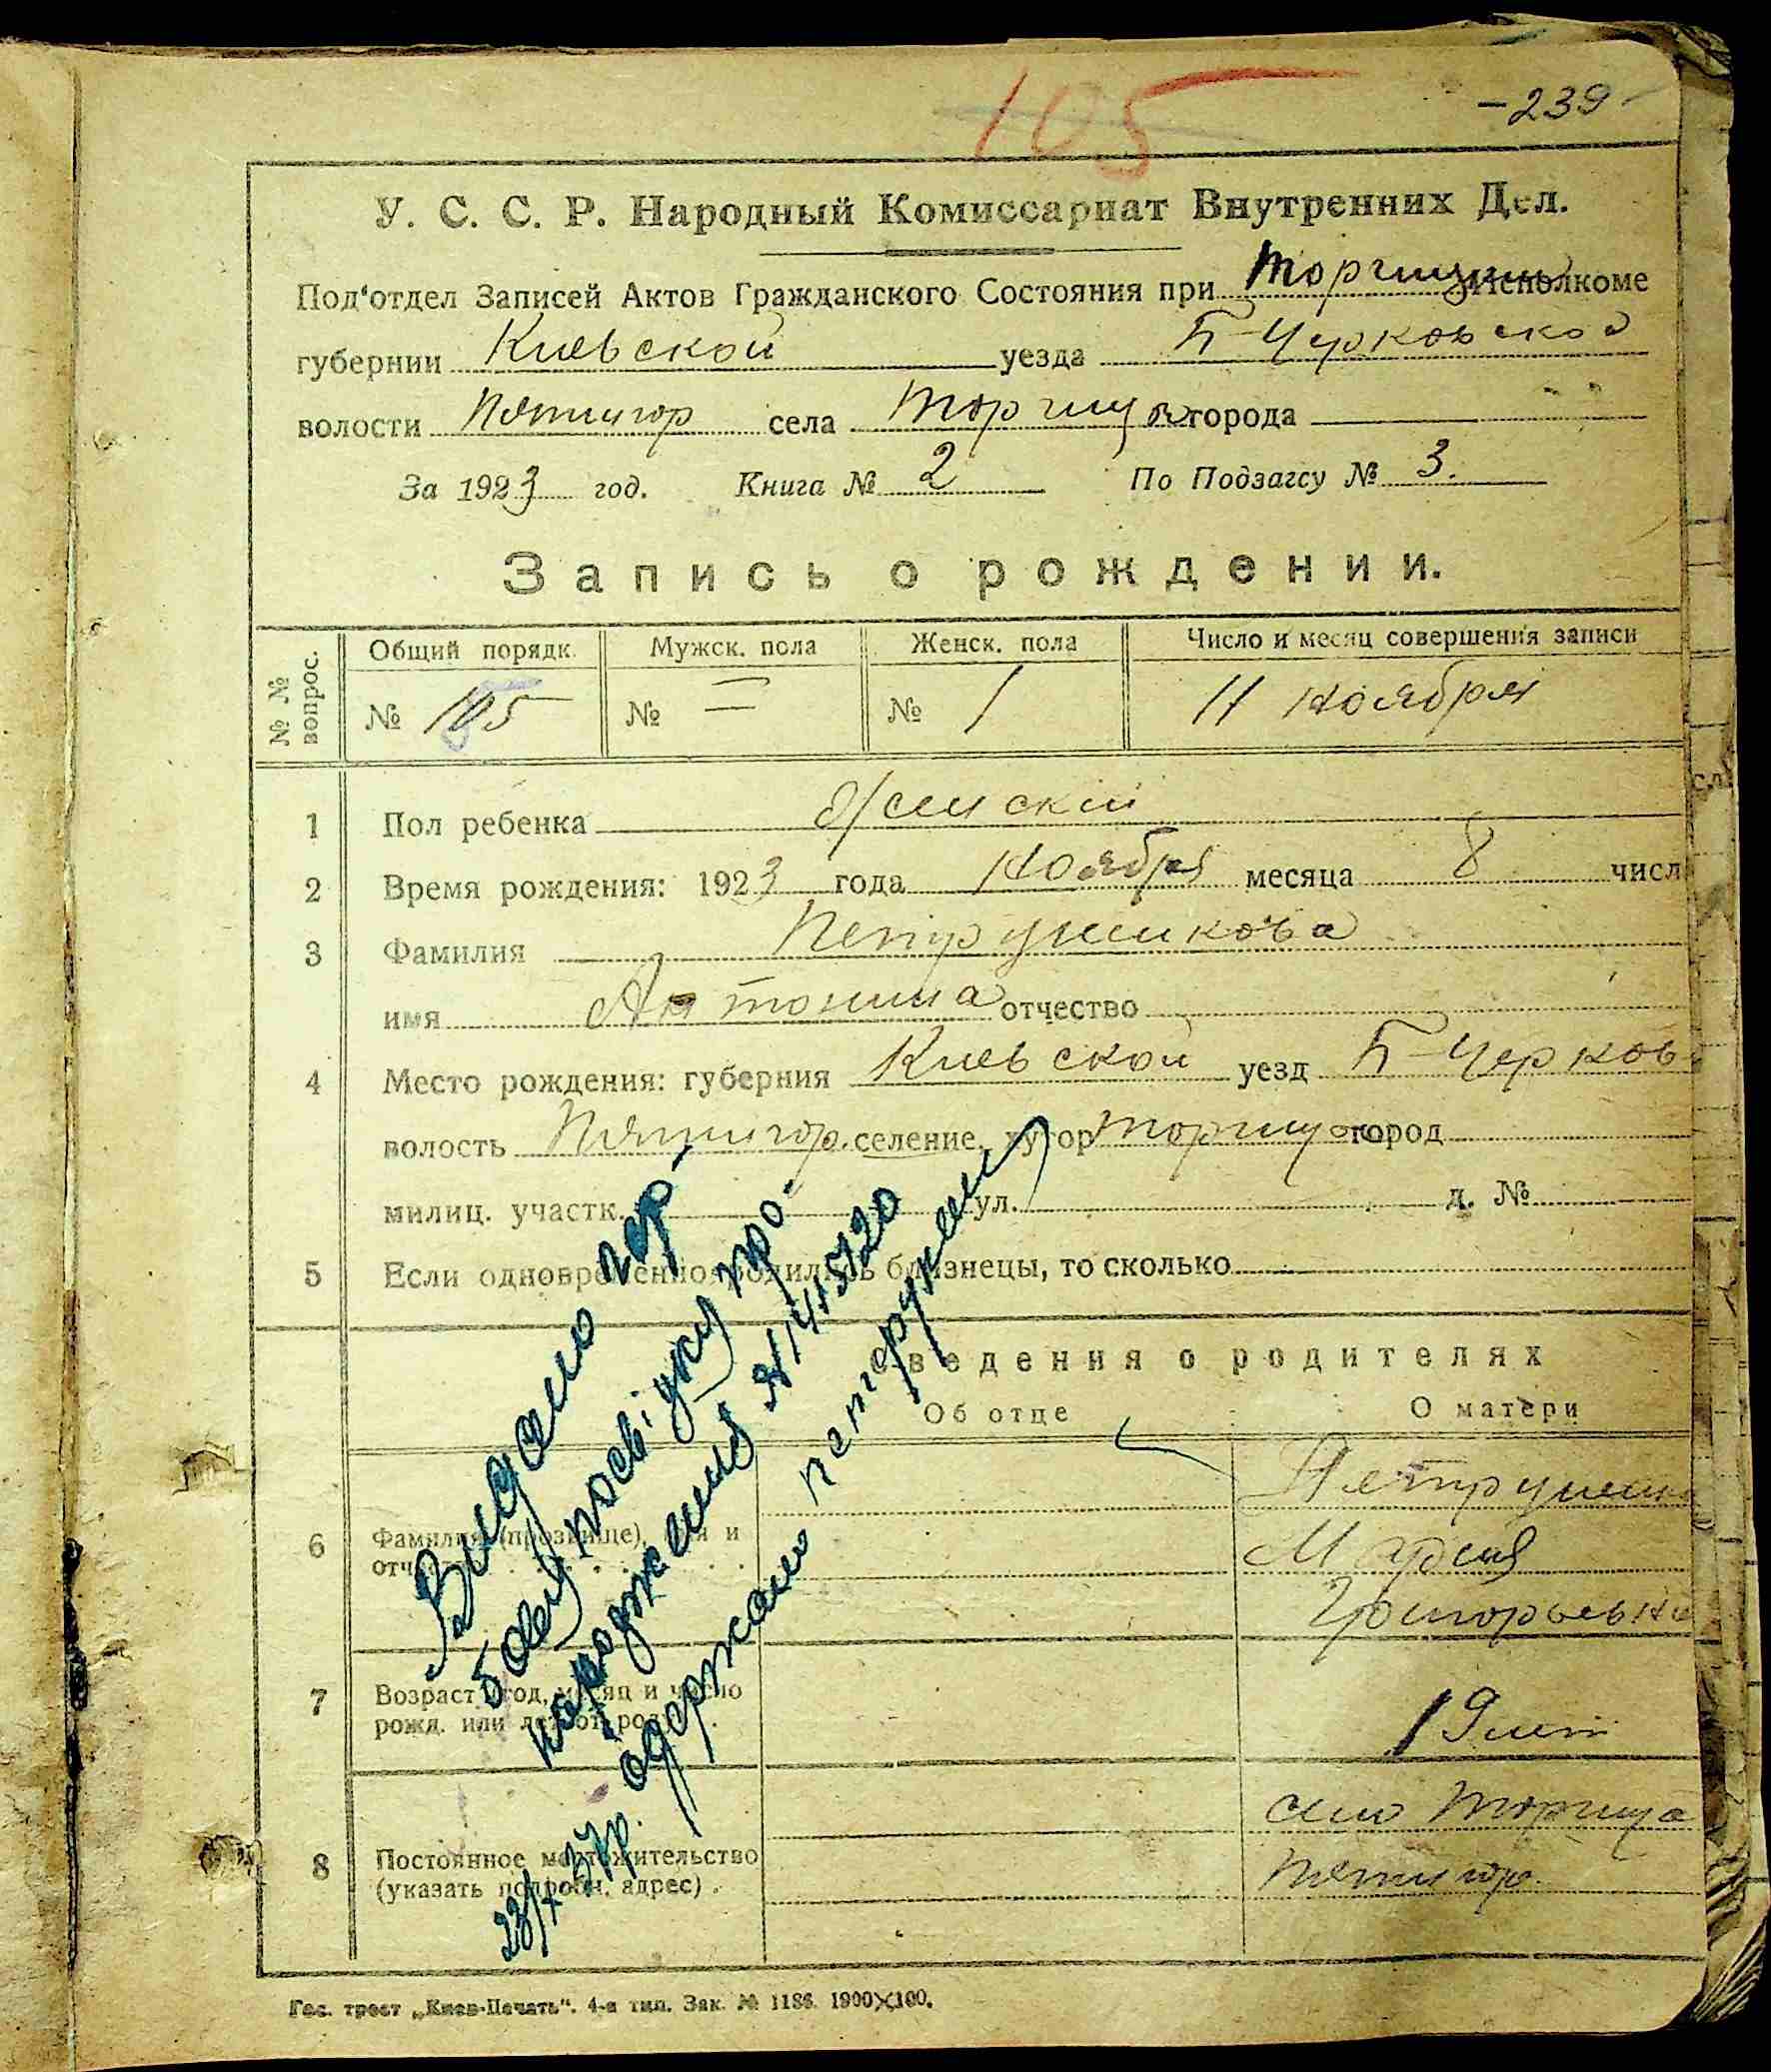 105
-239-
У. С. С. Р. Народный Комиссариат Внутренних Дел.
Под'отдел Записей Актов Гражданского Состояния при Исполкоме
губернии Киевской уезда Б-Церковской
волости Пятигор села Торчица города
За 1923 год. Книга № 2 По Подзагсу № 3.
Запись о рождении.
№ № вопрос.
Общий порядк. Мужск. пола Женск. пола Число и месяц совершения записи
№ 105 № — № 1 11 ноября
1 Пол ребенка женский
2 Время рождения: 1923 года ноября месяца 8 числ
3 Фамилия Петрушкова
имя Антонина отчество
4 Место рождения: губерния Киевской уезд Б-Церков
волость Пятигор. селение, хутор Торчица город
милиц. участк. ул. д. №
5 Если одновременно родились близнецы, то сколько
Сведения о родителях
Об отце О матери
6 Фамилия (прозвище), имя и
отчество
Мария
Григорьевна
7 Возраст (год, месяц и число
рожд. или лет от роду).
19 лет
8 Постоянное местожительство
(указать подробн. адрес).
село Торчица
Пятигор.
Видано
посвідку про
народження
одержало
Гос. трест „Киев-Печать". 4-я тип. Зак. № 1186. 1900×100.